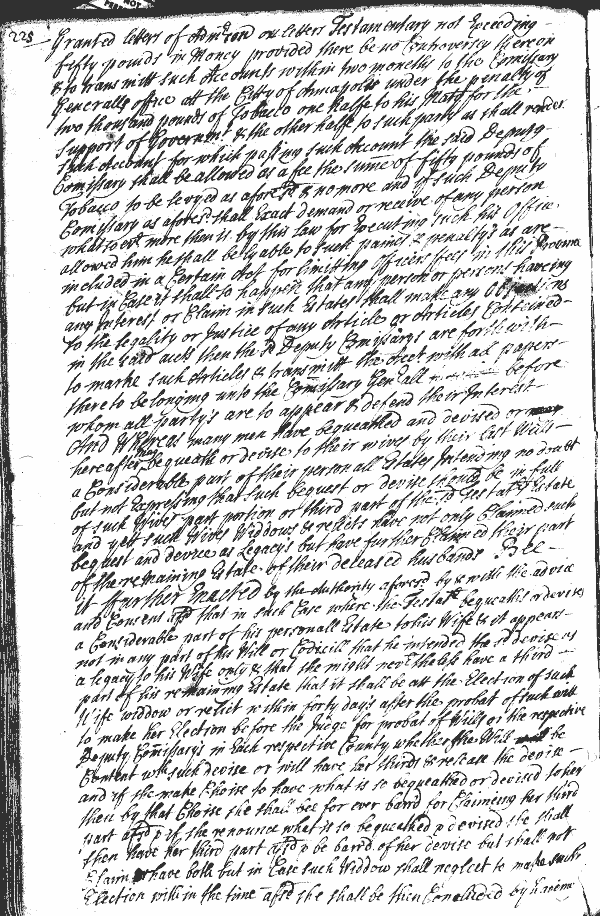 225
Granted letters of Admrcon or letters Testamentary not Exceeding
fifty pounds in Money provided there be no Controversy thereon
& to transmitt such Accounts within two moneths to the Comissary
Generalls office att the Citty of Annapolis under the penalty of
two thousand pounds of Tobacco one halfe to his Majty for the
support of Government & the other halfe to such party as shall render
such Account for which passing such Account the said Deputy
Comissary shall be allowed as a fee the sume of fifty pounds of
Tobacco to be levyed as aforesd & no more and if such Deputy
Comissary as aforesd shall Exact demand or receive of any person
whatsoever more then is by this law for Executing such his Office
allowed him he shall be lyable to such paines & penaltys as are
included in a Certain Act for limitting officers fees in this Province
but in Case it shall so happen that any person or persons haveing
any Interest or Claim in such Estates shall make any Objections
to the legality or Justice of any Article or Articles Conteined
in the said accts then the sd Deputy Comissarys are forthwith
to marke such Articles & transmitt the acct with all papers
thereto belonging unto the Comissary Genall before
whom all partys are to appear & defend their Interest
And Whereas many men have bequeathed and devised or
hereafter may bequeath or devise to their wives by their last Wills
a Considerable part of their personall Estates Intending no doubt
but not Expressing that such bequest or devise should be in full
of such Wives part portion or third part of the sd Testatrs Estate
and yett such Wives Widdows & relicts have not only Claimed such
bequest and device as Legacys but have further Claimed their part
of the remaining Estate of their deceased husbands Bee
it ffurther Enacted by the Authority aforesd by & with the advice
and Consent afsd that in such Case where the Testatr bequeaths or devises
a Considerable part of his personall Estate to his Wife & it appears
not in any part of his Will or Codicill that he intended the sd devise as
a legacy to his Wife only & that she might nevrthelesse have a third
part of his remaining Estate that it shall be att the Election of such
Wife widdow or relict within forty days after the probat of such will
to make her Election before the Judge for probat of Wills or the respective
Deputy Comissarys in Each respective County whether she Will be
Content with such devise or will have her thirds & release the devise
and if she make Choise to have what is so bequeathed or devised to her
then by that Choise she shall bee for ever barrd for Claimeing her third
part afsd & if she renounce what is so bequeathed or devised she shall
then have her third part afsd & be barrd of her devise but shall not
Claim or have both but in Case such Widdow shall neglect to make such
Election within the time afsd she shall be then Concluded by